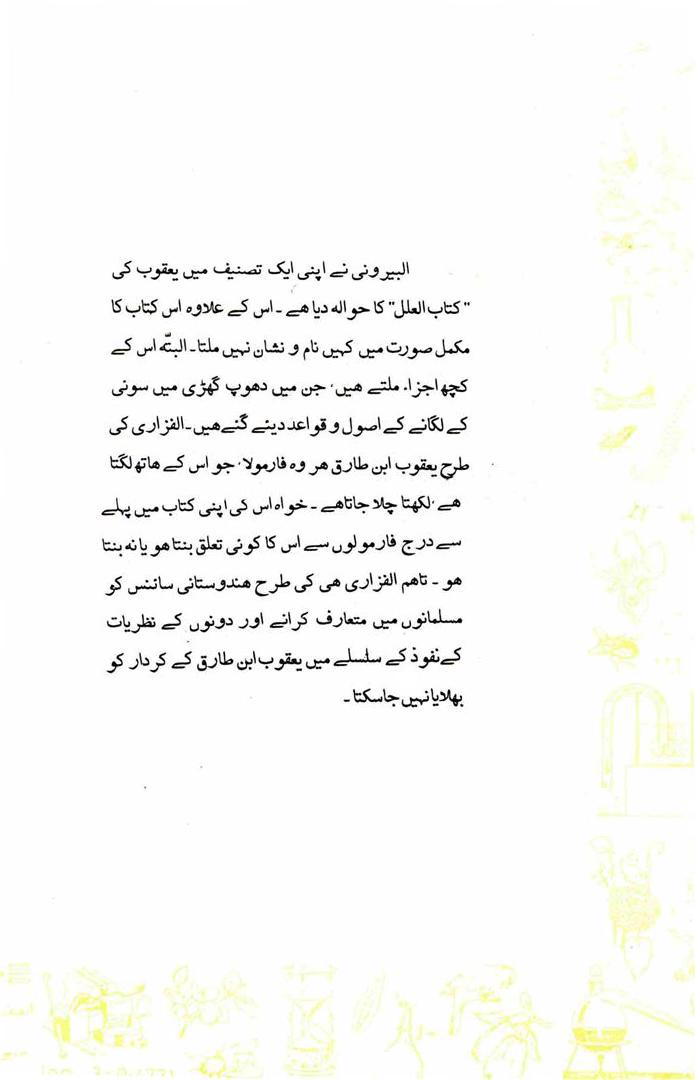 البیرونی نے اپنی ایک تصنیف میں یعقوب کی
"کتاب العلل" کا حوالہ دیا ھے ۔ اس کے علاوہ اس کتاب کا
مکمل صورت میں کہیں نام و نشان نہیں ملتا۔ البتّہ اس کے
کچھ اجزاء ملتے ھیں، جن میں دھوپ گھڑی میں سوئی
کے لگانے کے اصول و قواعد دیئے گئے ھیں۔ الفزاری کی
طرح یعقوب ابن طارق ھر وہ فارمولا، جو اس کے ھاتھ لگتا
ھے، لکھتا چلا جاتا ھے ۔ خواہ اس کی اپنی کتاب میں پہلے
سے درج فارمولوں سے اس کا کوئی تعلق بنتا ھو یا نہ بنتا
ھو ۔ تاھم الفزاری ھی کی طرح ھندوستانی سائنس کو
مسلمانوں میں متعارف کرانے اور دونوں کے نظریات
کے نفوذ کے سلسلے میں یعقوب ابن طارق کے کردار کو
بھلایا نہیں جاسکتا ۔